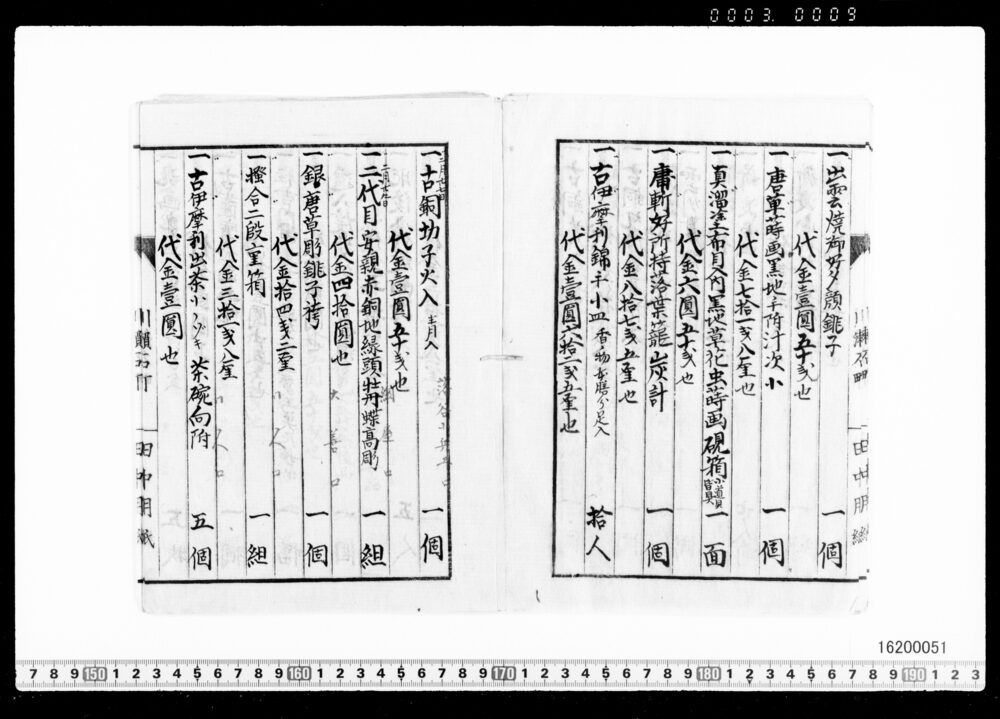 0003. 0009
一 出雲焼御好夕顔銚子 一個
代金壹圓五十戔也
一 唐草蒔画黒地手附汁次小 一個
代金七拾一戔八厘也
一 真溜塗布目内黒地草花虫蒔画硯箱 小道具皆具 一面
代金六圓五十戔也
一 庸軒好所持落葉籠炭計 一個
代金八拾七戔五厘也
一 古伊摩利錦手小皿 香物 膳分足入 拾人
代金壹圓六拾二戔五厘也
一 古銅切子火入 一個
代金壹圓五十戔也
一 二代目安親赤銅地縁頭牡丹蝶高彫 一組
代金四拾圓也
一 銀唐草彫銚子袴 一個
代金拾四戔三厘
一 掻合二段重箱 一組
代金三拾一戔八厘
一 古伊摩利出茶小ノゾキ茶碗向附 五個
代金壹圓也
川瀬石町
田中朋
16200051
7 8 9 150 1 2 3 4 5 6 7 8 9 160 1 2 3 4 5 6 7 8 9 170 1 2 3 4 5 6 7 8 9 180 1 2 3 4 5 6 7 8 9 190 1 2 3